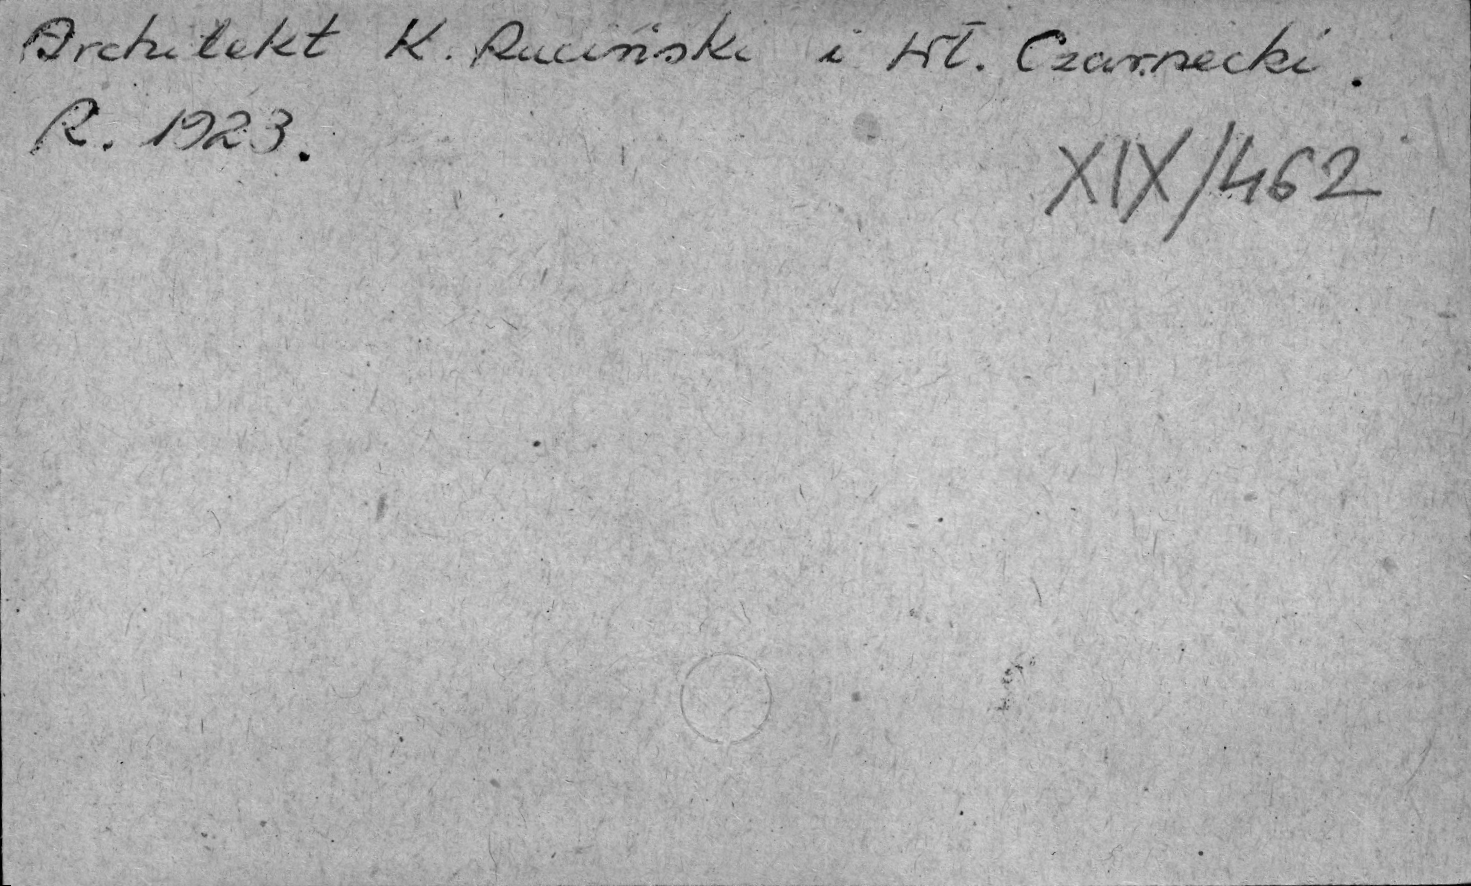 Architekt K. Ruciński i Wł. Czarnecki.
R. 1923.
XIX/462